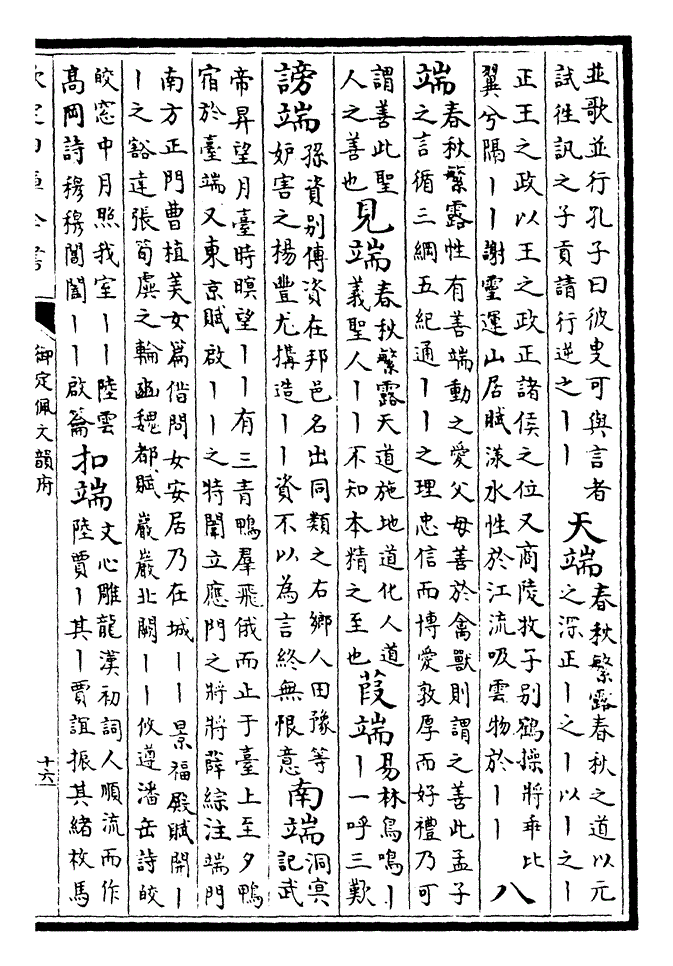 並歌並行孔子曰彼叟可與言者
試徃訊之子貢請行逆之丨丨
天端
春秋繁露春秋之道以元
之深正丨之丨以丨之丨
正王之政以王之政正諸侯之位又商陵牧子别鶴操將乖比
翼兮隔丨丨謝靈運山居賦漾水性於江流吸雲物於丨丨
八
端
春秋繁露性有善端動之愛父母善於禽獸則謂之善此孟子
之言循三綱五紀通丨丨之理忠信而博愛敦厚而好禮乃可
謂善此聖
人之善也
見端
春秋繁露天道施地道化人道
義聖人丨丨不知本精之至也
葭端
易林鳥鳴丨
丨一呼三歎
謗端
孫資别傳資在邦邑名出同類之右鄉人田豫等
妒害之楊豐尤搆造丨丨資不以為言終無恨意
南端
洞㝠
記武
帝昇望月臺時暝望丨丨有三青鴨羣飛俄而止于臺上至夕鴨
宿於臺端又東京賦啟丨丨之特闈立應門之將將薛綜注端門
南方正門曹植美女篇借問女安居乃在城丨丨景福殿賦開丨
丨之豁達張筍虡之輪豳魏都賦巖巖北闕丨丨攸遵潘岳詩皎
皎窓中月照我室丨丨陸雲
髙岡詩穆穆閶闔丨丨啟籥
扣端
文心雕龍漢初詞人順流而作
陸賈丨其丨賈誼振其緒枚馬
御定佩文韻府
十六